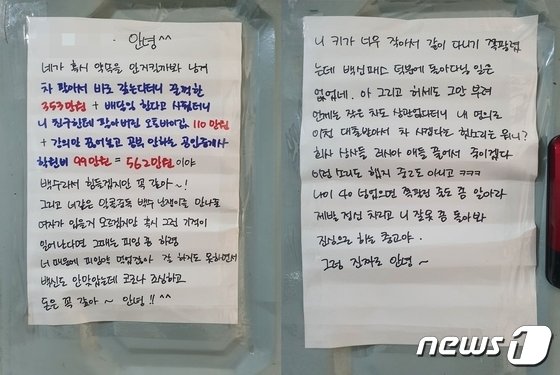 안녕^^
네가 혹시 약속을 안지킬까봐 남겨
차 팔아서 바로 갚는다더니 꿀꺽한
353만원 + 배달일 한다고 사줬더니
니 친구한테 팔아버린 오토바이값 110만원
+ 강의만 끊어놓고 공부 안하는 공인중개사
학원비 99만원 = 562만원 이야
백수라서 힘들겠지만 꼭 갚아~!
그리고 너같은 알콜중독 백수 난쟁이를 만나줄
여자가 있을지 모르겠지만 혹시 그런 기적이
일어난다면 그때는 피임 좀 하렴
너 때문에 피임약 먹었잖아 잘 하지도 못하면서
백신도 안맞았는데 코로나 조심하고
돈은 꼭 갚아~ 안녕!!^^
니 키가 너무 작아서 같이 다니기 쪽팔렸
는데 백신패스 덕분에 돌아다닐 일은
없었네. 아 그리고 허세도 그만 부려
언제는 작은 차도 상관없다더니 내 명의로
이전 대출받아서 차 사겠다는 헛소리는 뭐니?
회사 상사들 러시아 애들 풀어서 죽이겠다
이런 소리도 했지 중2도 아니고 ㅋㅋㅋ
나이 40 넘었으면 쪽팔린 줄도 좀 알아라
제발 정신 차리고 니 잘못 좀 돌아봐
진심으로 하는 충고야.
그럼 진짜로 안녕~
news1